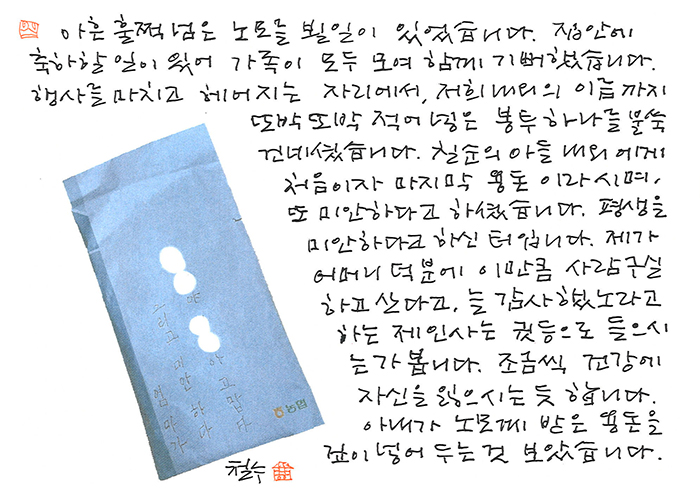 아흔 훌쩍 넘은 노모를 뵐 일이 있었습니다. 집안에
축하할 일이 있어 가족이 모두 모여 함께 기뻐했습니다.
행사를 마치고 헤어지는 자리에서, 저희 내외의 이름까지
또박또박 적어 넣은 봉투 하나를 불쑥
건네셨습니다. 칠순의 아들 내외에게
처음이자 마지막 용돈이라시며,
또 미안하다고 하셨습니다. 평생을
미안하다고 하신 터입니다. 제가
어머니 덕분에 이만큼 사람 구실
하고 산다고, 늘 감사했노라고
하는 제 인사는 귓등으로 들으시
는가 봅니다. 조금씩 건강에
자신을 잃으시는 듯 합니다.
아내가 노모께 받은 용돈을
깊이 넣어 두는 것 보았습니다.
야
고맙다
그리고 미안하다
엄마가
농협
철수